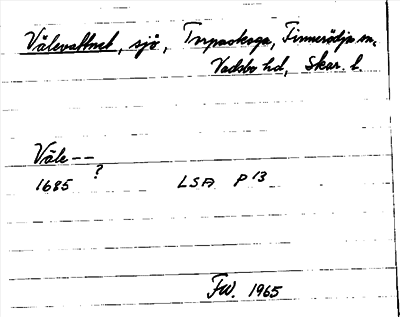 Vålevattnet, sjö, Torpaskoga, Finnerödja sn,
Vadsbo hd, Skar. l.
Våle--
?
1685 LSA P 13
FW. 1965